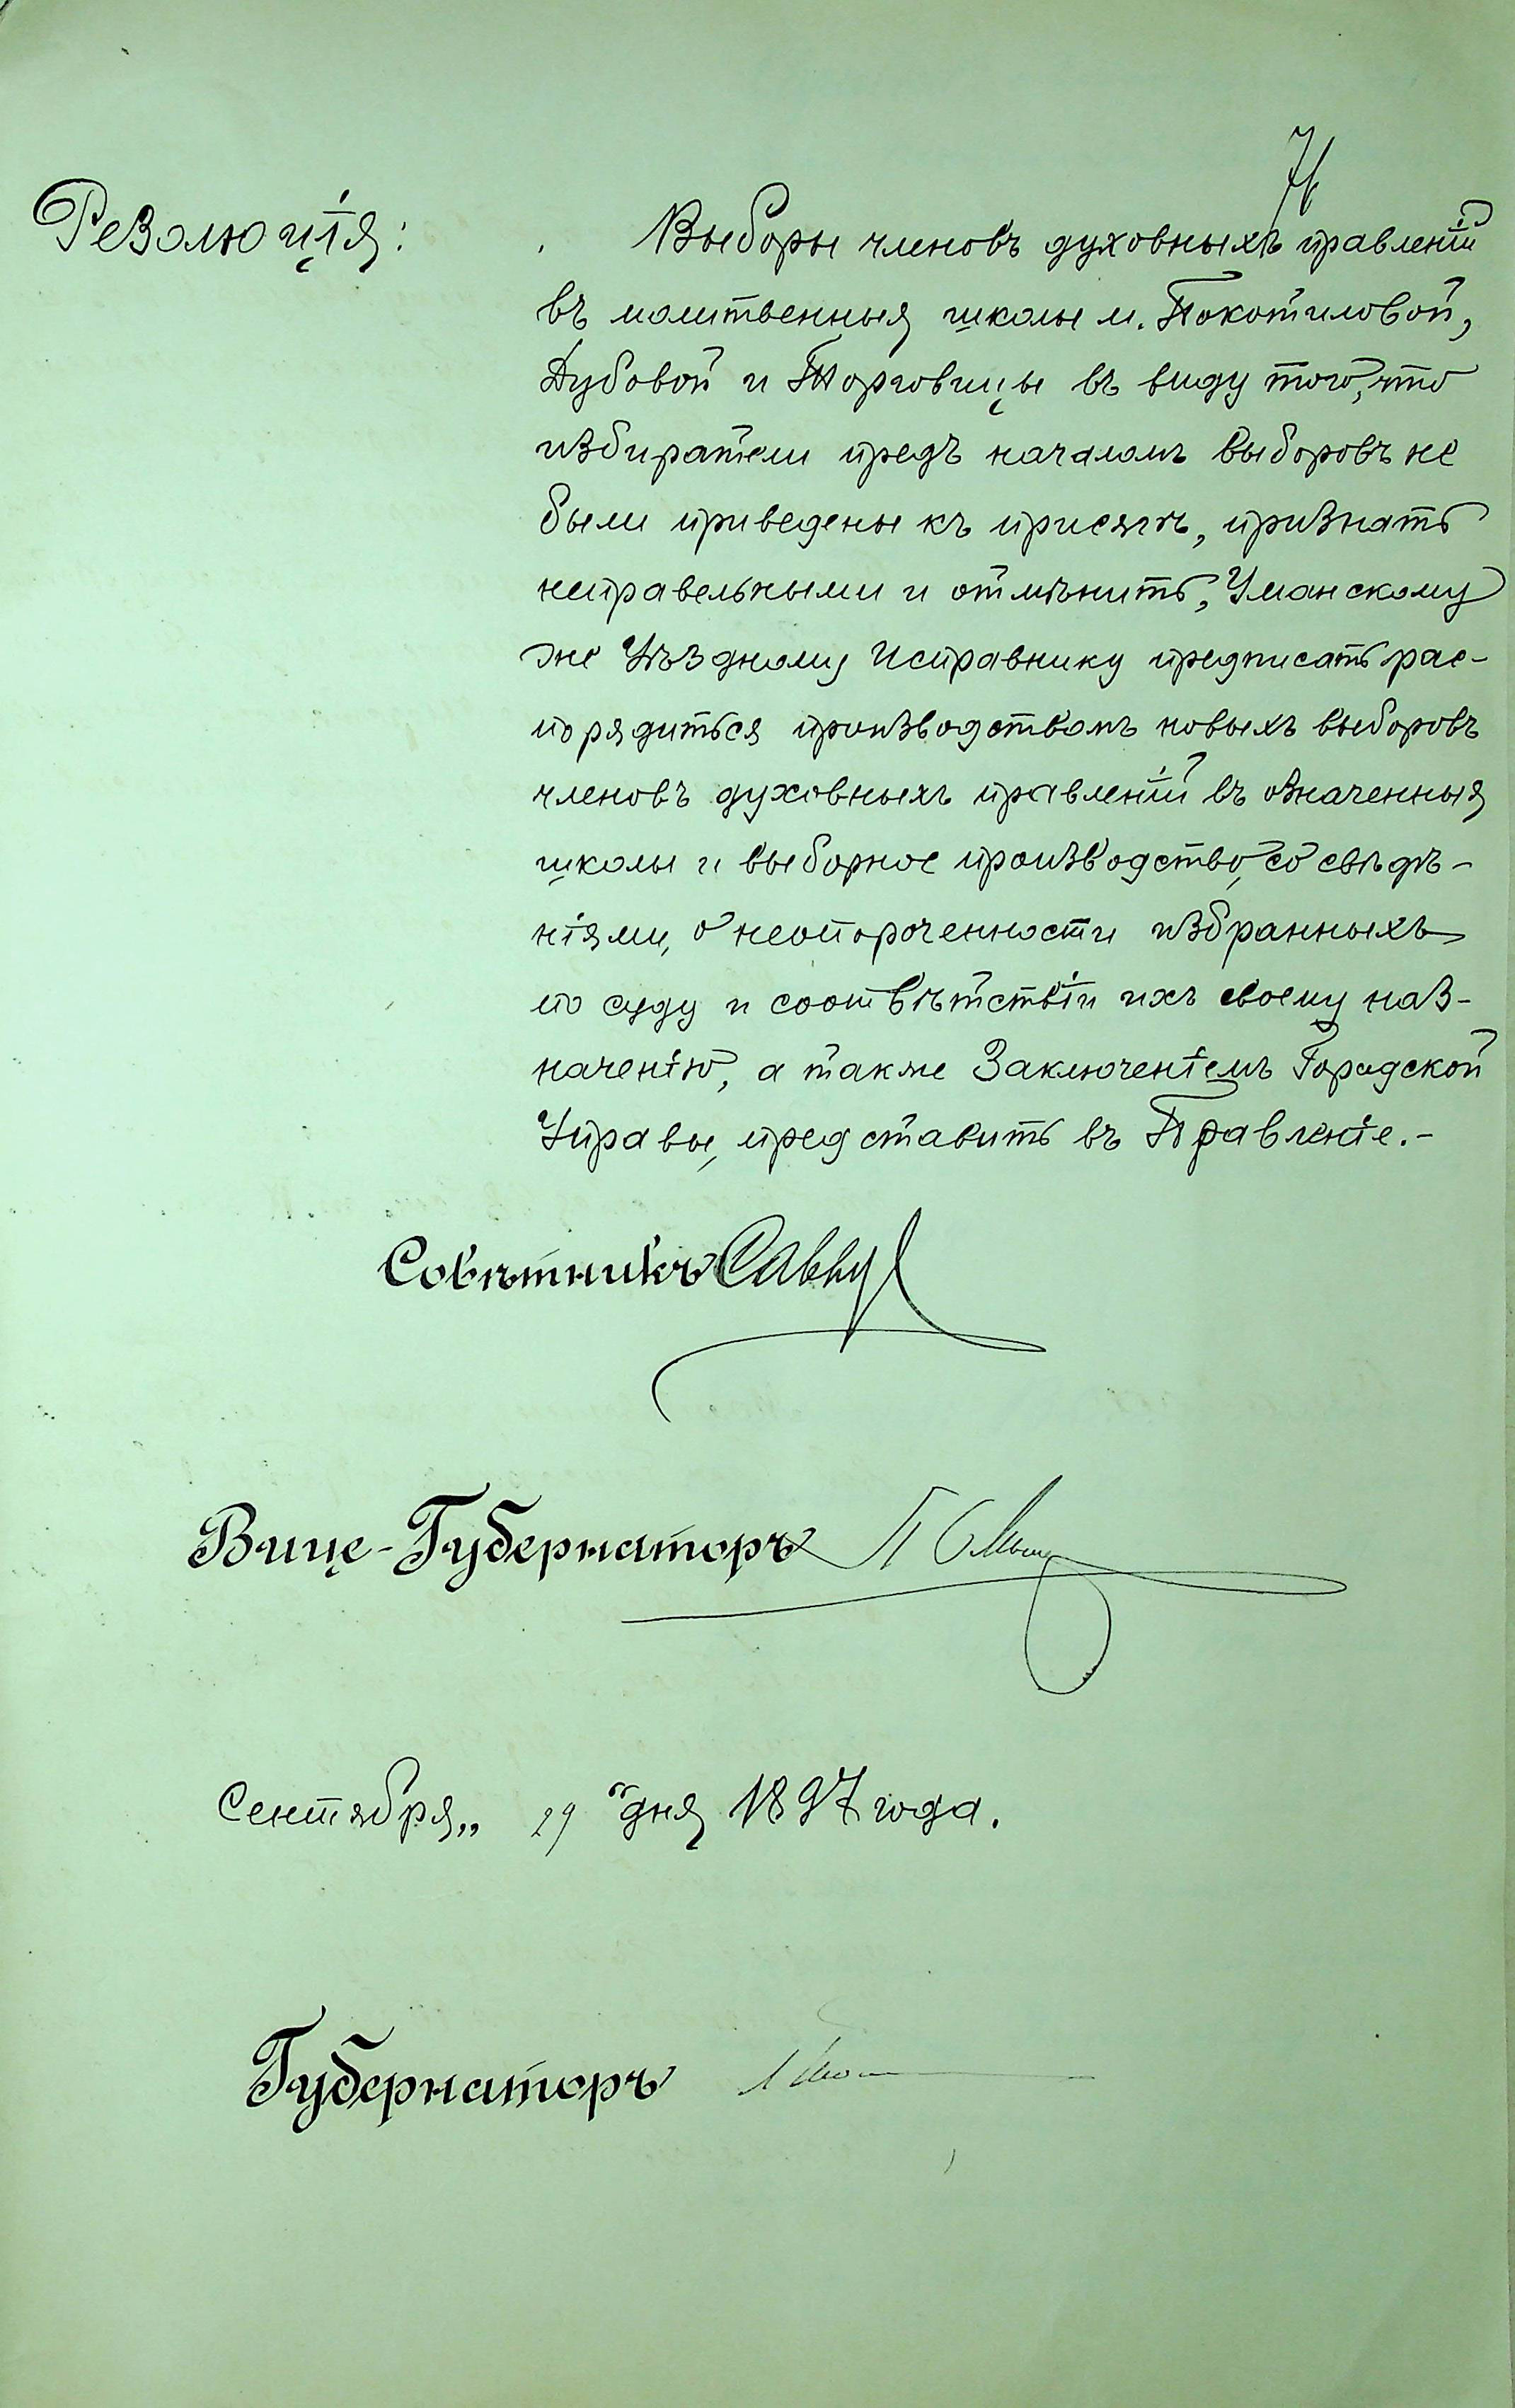 Резолюція:
Выборы членовъ духовныхъ правленій
въ молитвенныя школы м. Покотиловой,
Дубовой и Торговицы въ виду того, что
избиратели предъ началомъ выборовъ не
были приведены къ присягѣ, признать
неправельными и отмѣнить, Уманскому
же Уѣздному Исправнику предписать рас-
порядиться производствомъ новыхъ выборовъ
членовъ духовныхъ правленій въ означенныя
школы и выборное производство, со свѣдѣ-
ніями, о неопороченности избранныхъ
по суду и соотвѣтствіи ихъ своему наз-
наченію, а также Заключеніемъ Городской
Управы, представить въ Правленіе.-
Совѣтникъ
Вице-Губернаторъ
Сентября „ 29 “ дня 1897 года.
Губернаторъ